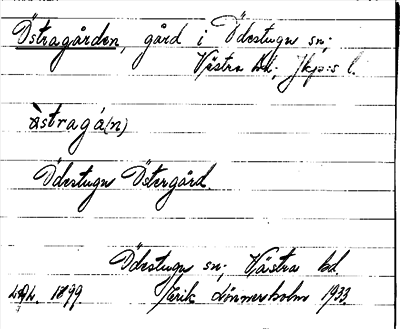 Östragården, gård i Ödestugu sn;
Västra hd; Jkp:s l.
östragá(n)
Ödestugu Östergård.
Ödestugu sn; Västra hd.
1899 Erik Lönnerholm 1933